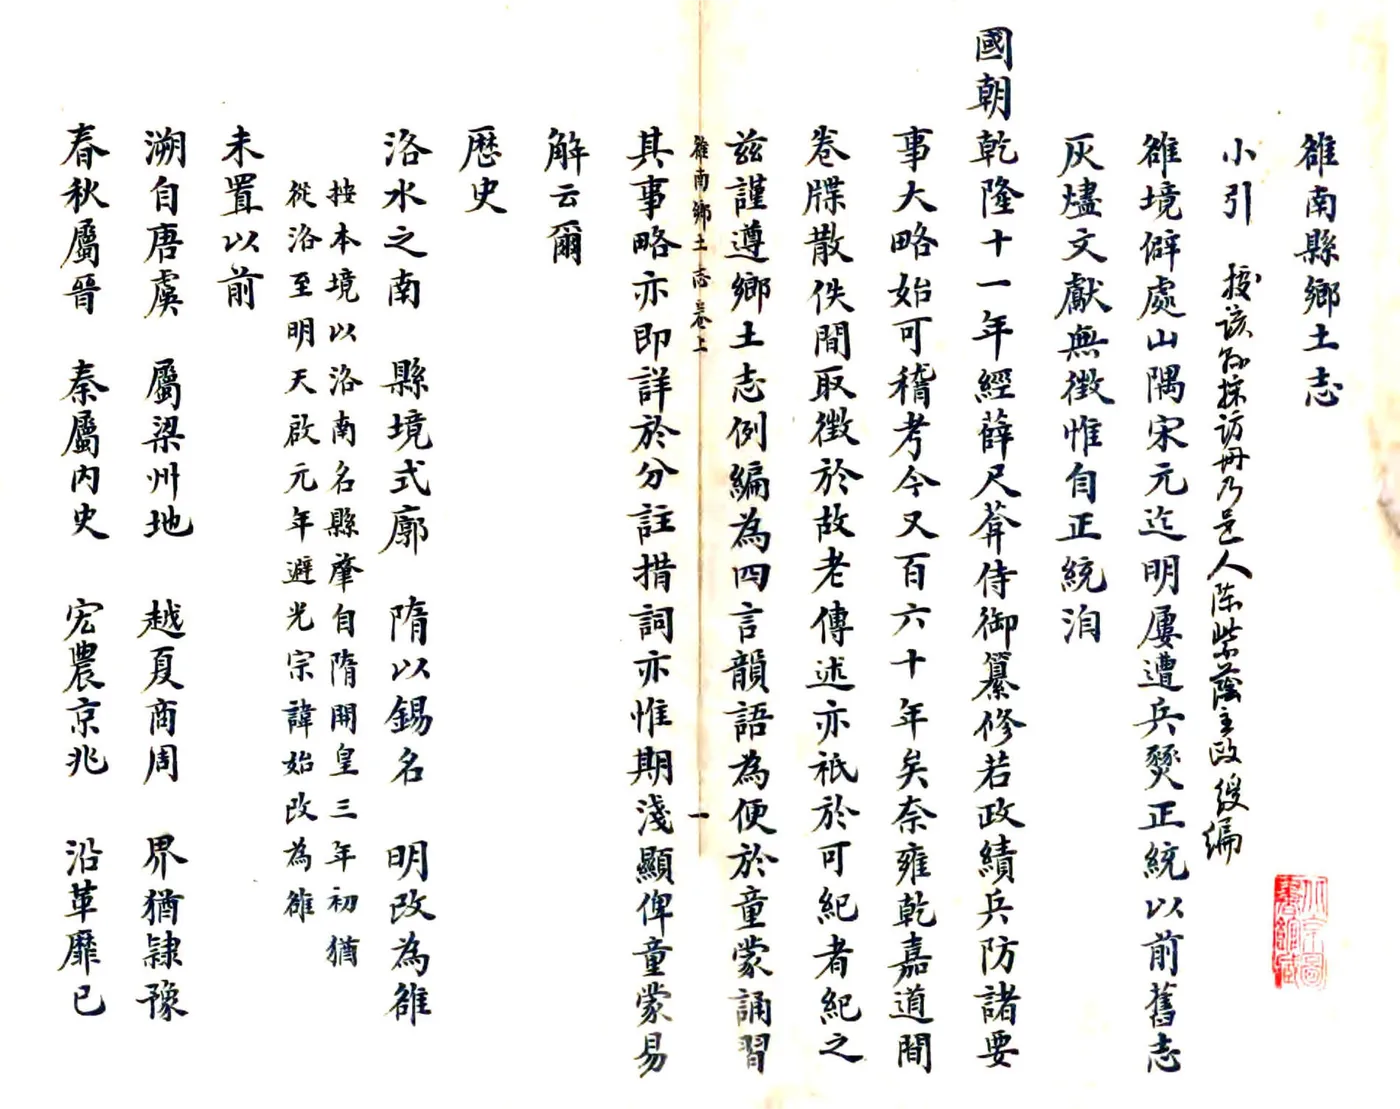 雒南縣鄉土志
小引 按該縣採訪冊乃邑人陳紫蔭主政綬編
雒境僻處山隅宋元迄明屢遭兵燹正統以前舊志
灰燼文獻無徵惟自正統洎
國朝乾隆十一年經薛尺菴侍御纂修若政績兵防諸要
事大略始可稽考今又百六十年矣奈雍乾嘉道間
卷牒散佚間取徵於故老傳述亦祇於可紀者紀之
茲謹遵鄉土志例編為四言韻語為便於童蒙誦習
雒南鄉土志卷上 一
其事略亦即詳於分註措詞亦惟期淺顯俾童蒙易
解云爾
歷史
洛水之南 縣境式廓 隋以錫名 明改為雒
按本境以洛南名縣肇自隋開皇三年初猶
從洛至明天啟元年避光宗諱始改為雒
未置以前
溯自唐虞 屬梁州地 越夏商周 界猶隸豫
春秋屬晉 秦屬內史 宏農京兆 沿革靡已
北京圖
書館藏